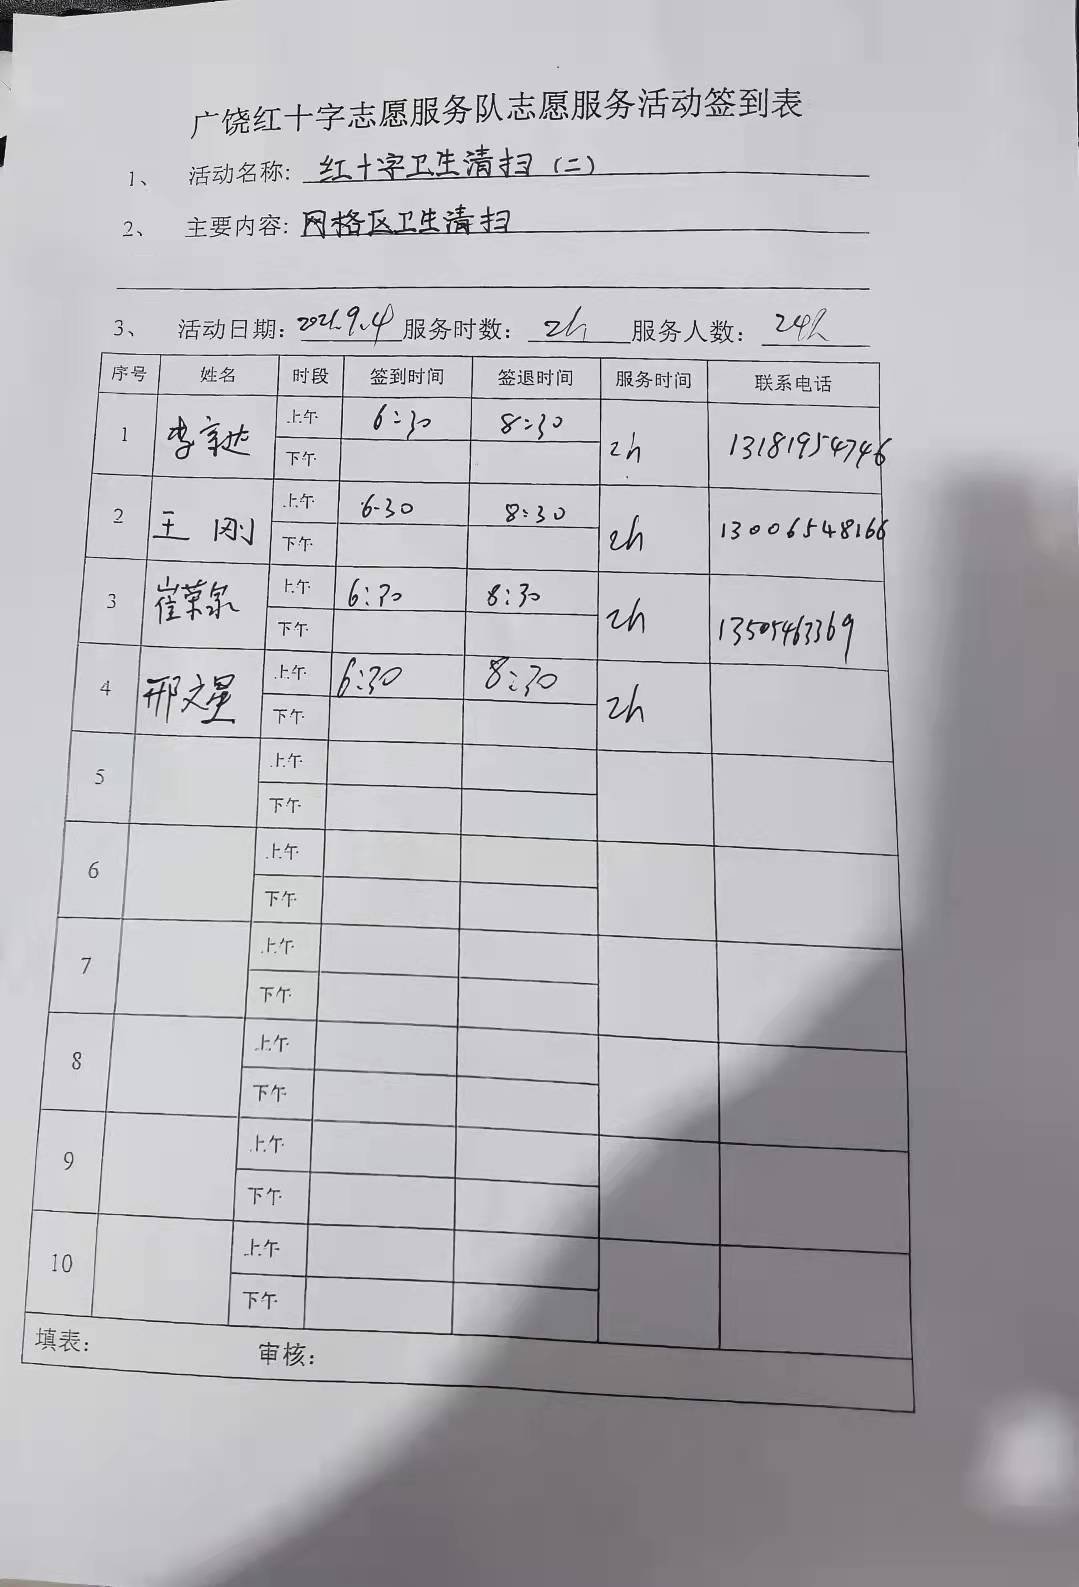 广饶红十字志愿服务队志愿服务活动签到表
1、 活动名称: 红十字卫生清扫(二)
2、 主要内容: 网格区卫生清扫
3、 活动日期: 2021.9.4 服务时数: 2h 服务人数: 24人
序号 姓名 时段 签到时间 签退时间 服务时间 联系电话
1 李 上午 6:30 8:30 2h 13181954746
下午
2 王刚 上午 6.30 8:30 2h 13006548166
下午
3 崔荣泉 上午 6:30 8:30 2h 13505463369
下午
4 邢文星 上午 6:30 8:30 2h
下午
5 上午
下午
6 上午
下午
7 上午
下午
8 上午
下午
9 上午
下午
10 上午
下午
填表: 审核: